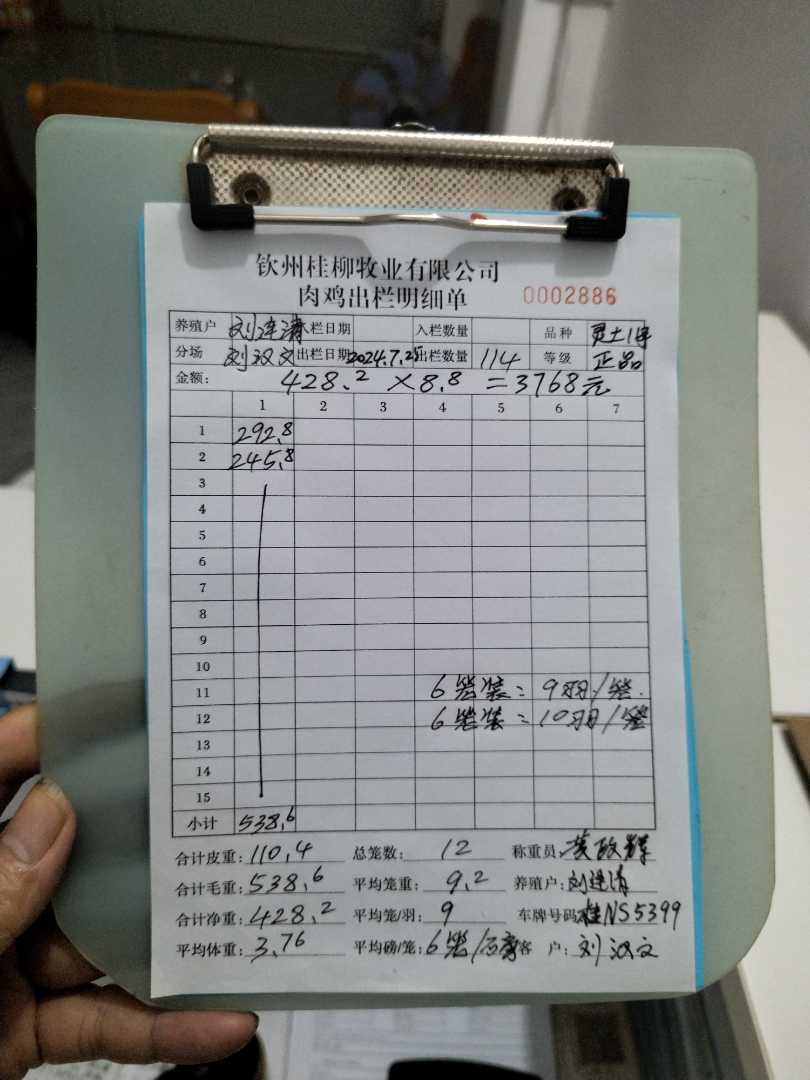 钦州桂柳牧业有限公司
肉鸡出栏明细单 0002886
养殖户 刘连清 入栏日期 入栏数量 品种 灵土1号
分场 刘汉文 出栏日期 2024.7.25 出栏数量 114 等级 正品
金额: 428.2 ×8.8 =3768元
1 2 3 4 5 6 7
1 292.8
2 245.8
3
4
5
6
7
8
9
10
11 6笼装: 9羽/笼.
12 6笼装: 10羽/笼
13
14
15
小计 538.6
合计皮重: 110.4 总笼数: 12 称重员: 黄政辉
合计毛重: 538.6 平均笼重: 9.2 养殖户: 刘连清
合计净重: 428.2 平均笼/羽: 9 车牌号码: 桂NS5399
平均体重: 3.76 平均磅/笼: 6笼/ 客 户: 刘汉文